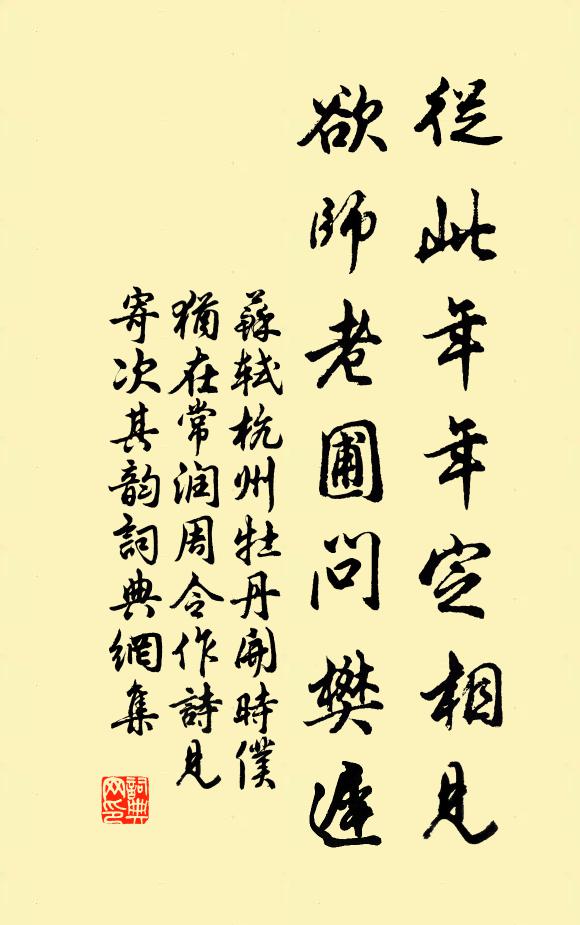 從此年年定相見
欲師老圃問樊遲
蘇軾杭州牡丹開時僕
猶在常润周令作詩見
寄次其韵詞典網集
詞典网印